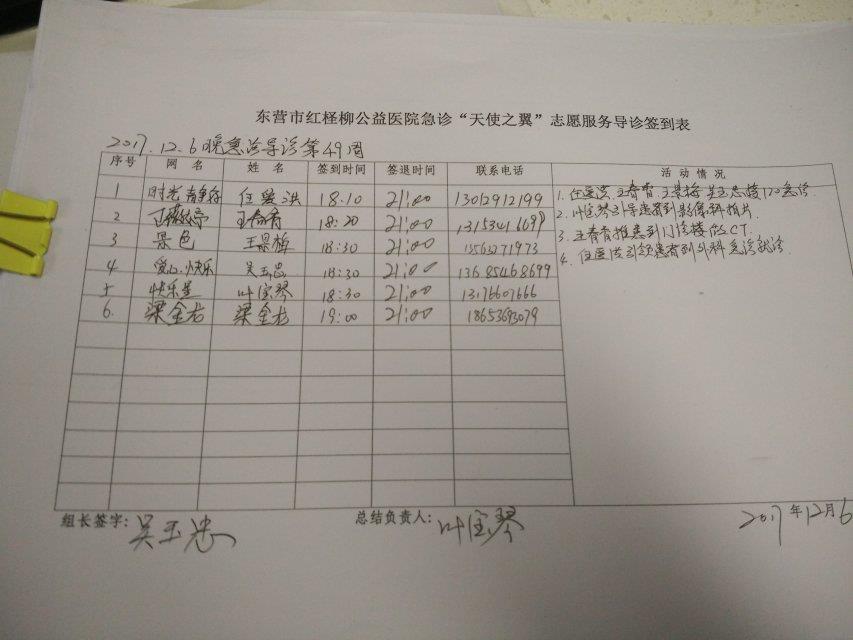 东营市红柽柳公益医院急诊“天使之翼”志愿服务导诊签到表
2017.12.6晚急诊导诊第49周
序号 网名 姓名 签到时间 签退时间 联系电话 活动情况
1 时光静好 任爱洪 18:10 21:00 13012912199
2 18:20 21:00
3 景色 王景梅 18:30 21:00 13563271973
4 爱心.快乐 吴玉忠 18:30 21:00 13685468699
5 快乐星 叶宝琴 18:30 21:00 13176607666
6. 梁金龙 梁金龙 19:00 21:00
1. 任爱洪、王春香、王景梅、吴玉忠接120急诊
2. 叶宝琴引导患者到影像科拍片.
3. 王春香推患到门诊楼做CT.
4. 任爱洪引领患者到外科急诊就诊.
组长签字：吴玉忠 总结负责人：叶宝琴 2017年12月6